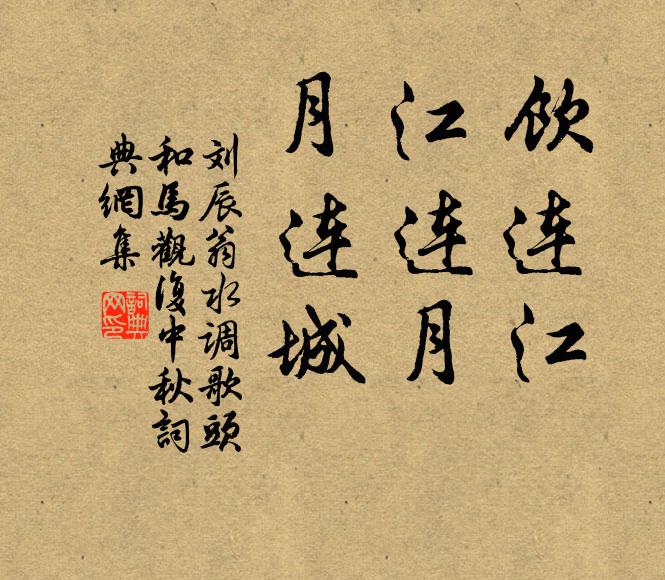 饮连江
江连月
月连城
刘辰翁水调歌头
和马觀復中秋詞
典網集
詞典
网印